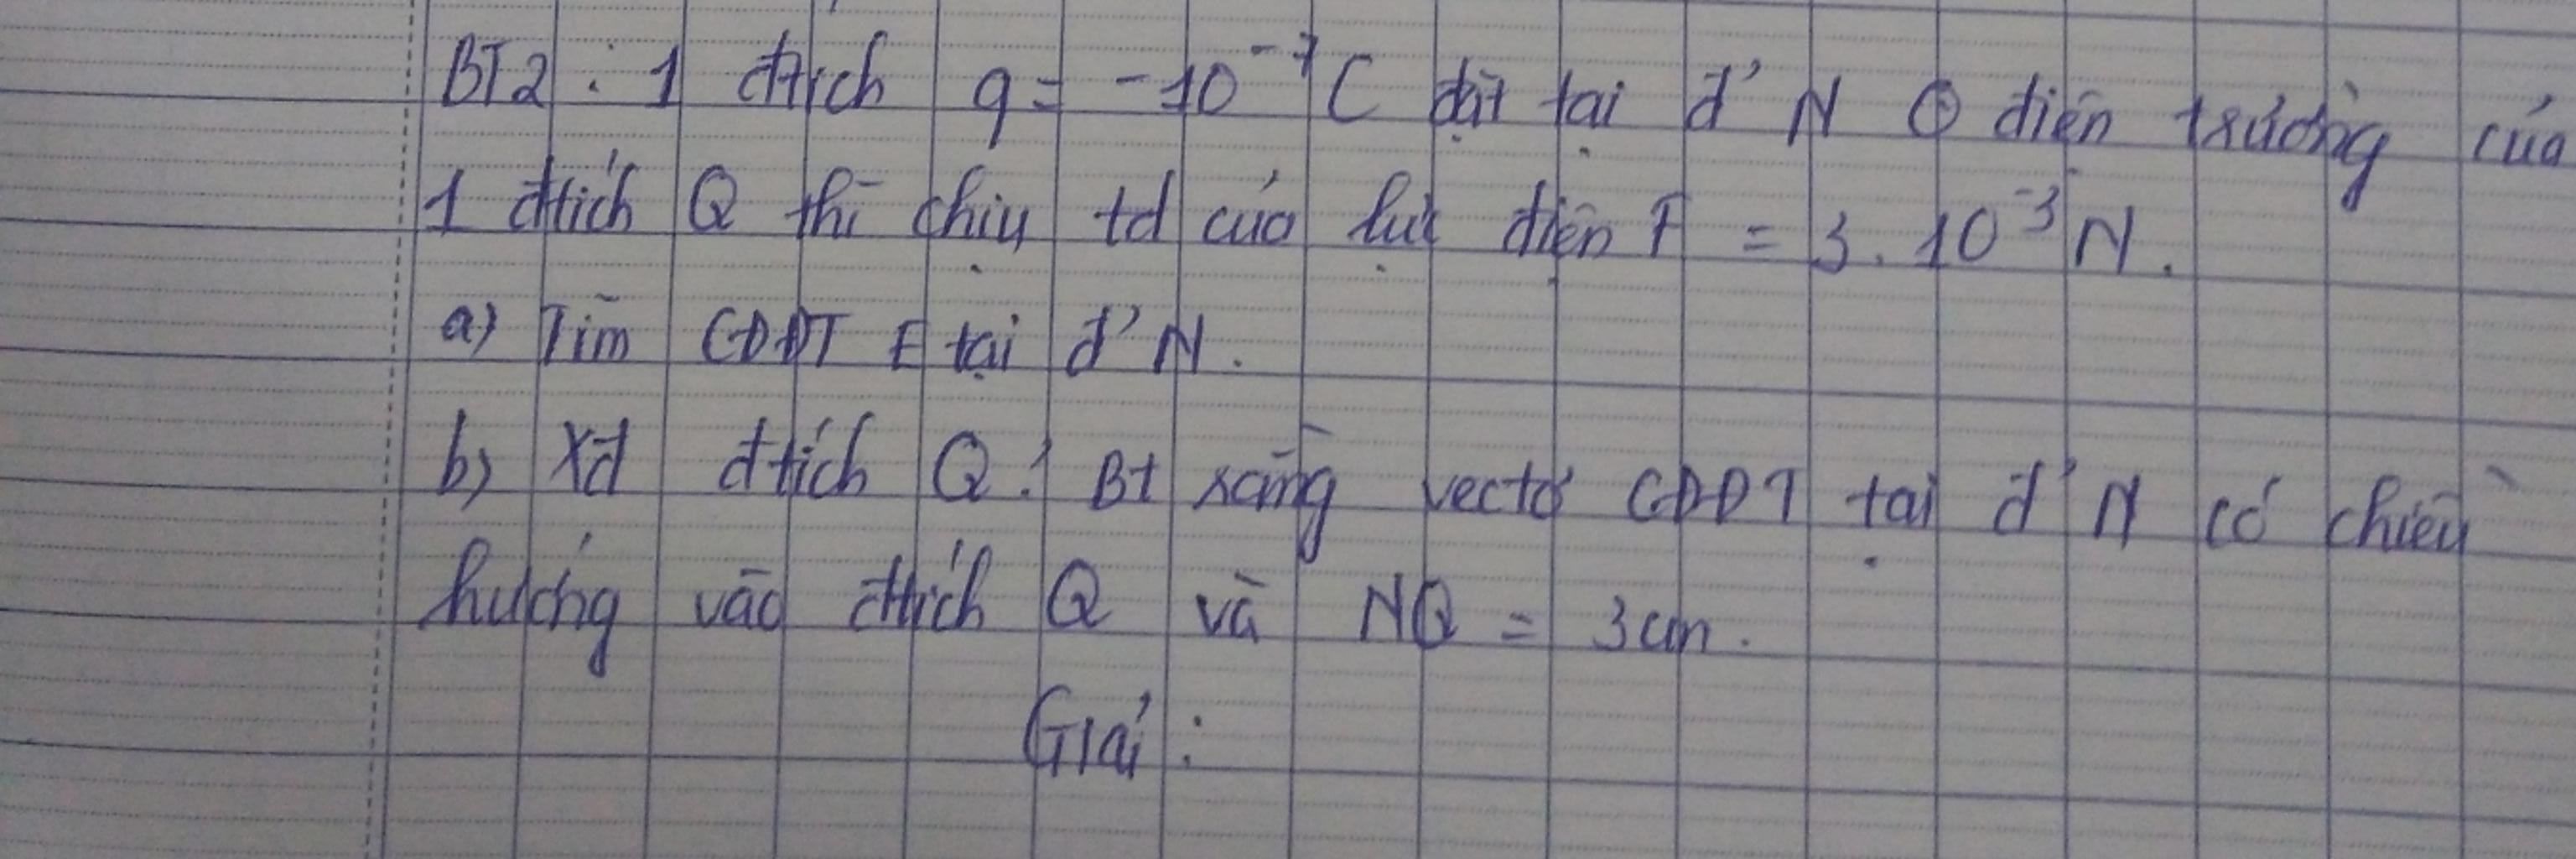 BT2 : 1 đtích q = -10⁻⁷C đặt tại đ' N ⊙ điện trường của
1 đtích Q thì chịu td của lực điện F = 3. 10⁻³N.
a) Tìm CĐĐT E tại đ' N.
b) Xđ đtích Q? Bt rằng vectơ CĐĐT tại đ' N có chiều
hướng vào đtích Q và NQ = 3cm.
Giải :